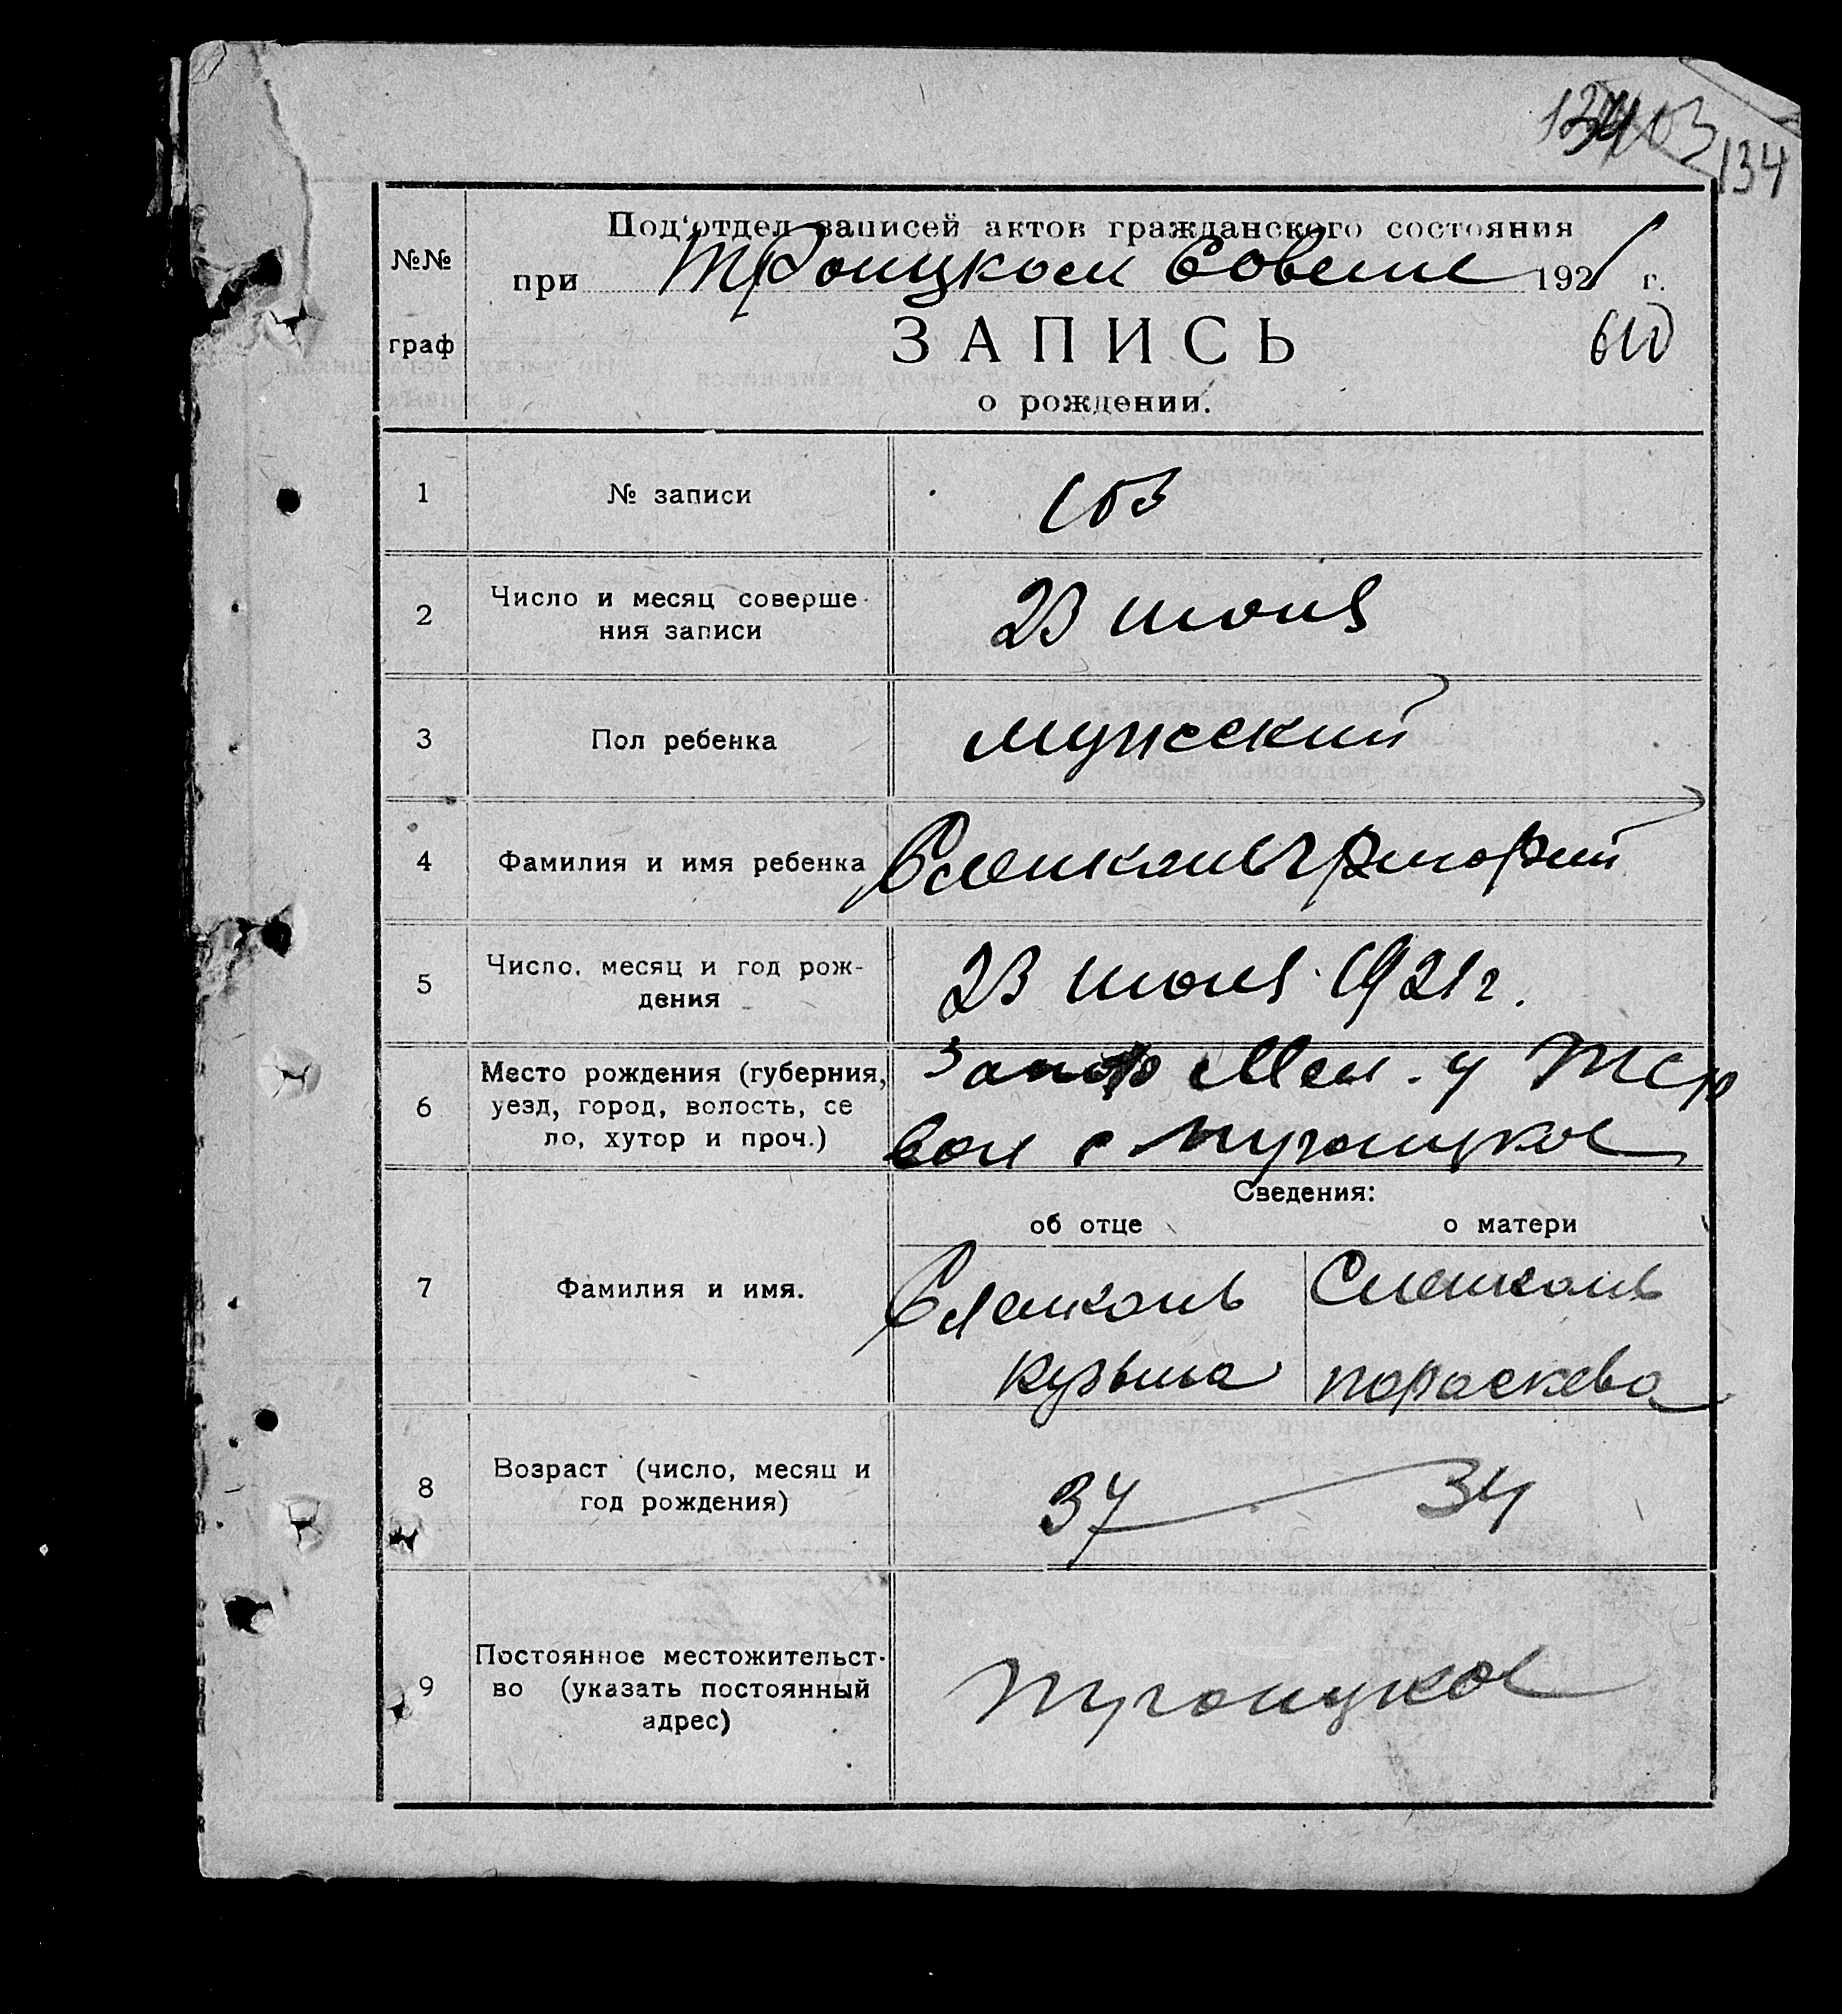 134
134
Под‘отдел записей актов гражданского состояния
№№
при Троицком Совете 1921 г.
ЗАПИСЬ
граф
о рождении.
1 № записи 103
2 Число и месяц соверше-
ния записи
23 июня
3 Пол ребенка мужеский
4 Фамилия и имя ребенка Григорий
5 Число, месяц и год рож-
дения
23 июня 1921 г.
6 Место рождения (губерния,
уезд, город, волость, се
ло, хутор и проч.)
Запор Мел. у
вол с Троицкое
Сведения:
об отце о матери
7 Фамилия и имя.
Кузьма Пораскева
8 Возраст (число, месяц и
год рождения)
37 34
9 Постоянное местожительст-
во (указать постоянный
адрес)
Троицкое